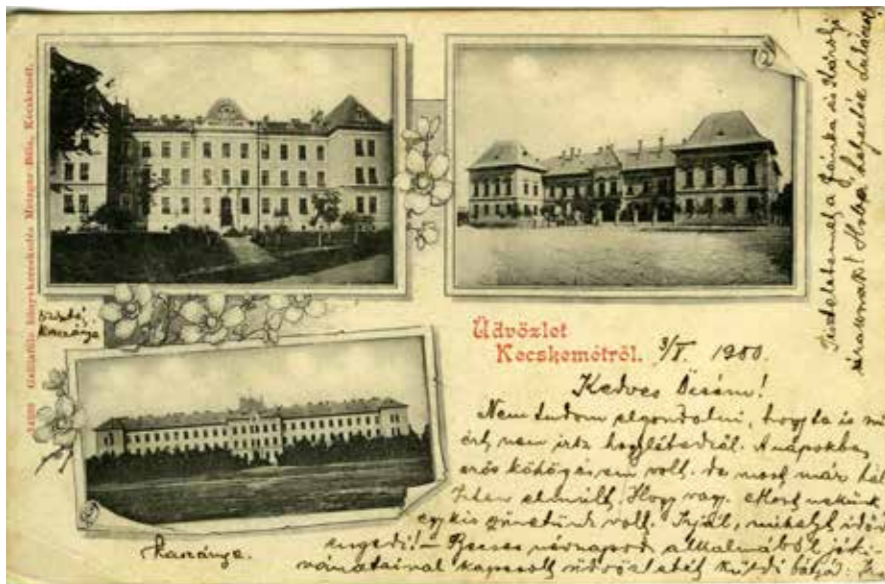 Gallia Fülöp könyvkereskedés Metzger Béla, Kecskemét.
Üdvözlet
Kecskemétről. 3/V. 1900.
Kedves Öcsém!
Nem tudom elgondolni, hogy te is mi
ért nem írsz hogylétedről. A napokban
erős köhögésem volt, de most már hál
Isten elmúlt. Hogy vagy. Most nekünk
egy kis szünetünk volt. Írjál, mihelyt időd
engedi! — Becses névnapod alkalmából jókí-
vánataival kapcsolt üdvözletét küldi bátyád.
Kaszárnya.
kaszárnya
Tiszteletemet a Jánka és Károlyi
uraknak!